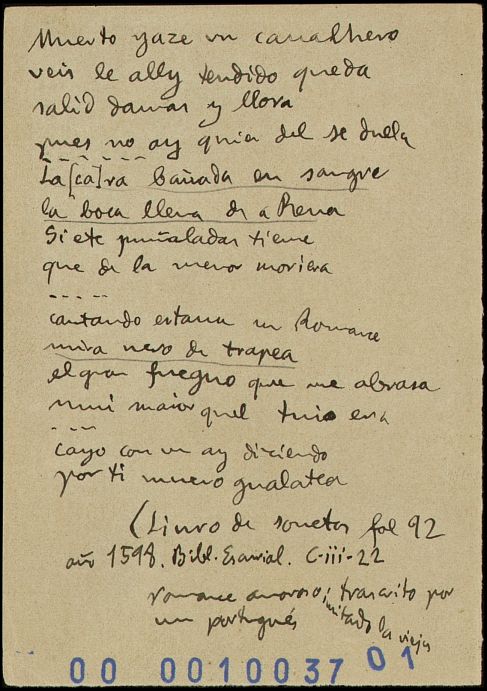 Muerto yaze un caualhero
veis le ally tendido queda
salid damas y llora
pues no ay quien del se duela
- - - - - -
La[ca]ra bañada en sangre
la boca llena de aRena
Siete puñaladas tiene
que de la menor moriera
- - - -
cantando estaua un Romance
mira nero de trapea
el gran fuegno que me abrasa
mui maior quel tuio era
- - -
cayo con un ay diziendo
por ti muero gualatea
(Liuro de sonetos fol 92
año 1598. Bibl. Escurial. C-iii-22
romance amoroso; trascrito por
un portugués imitado la vieja
00 0010037 01